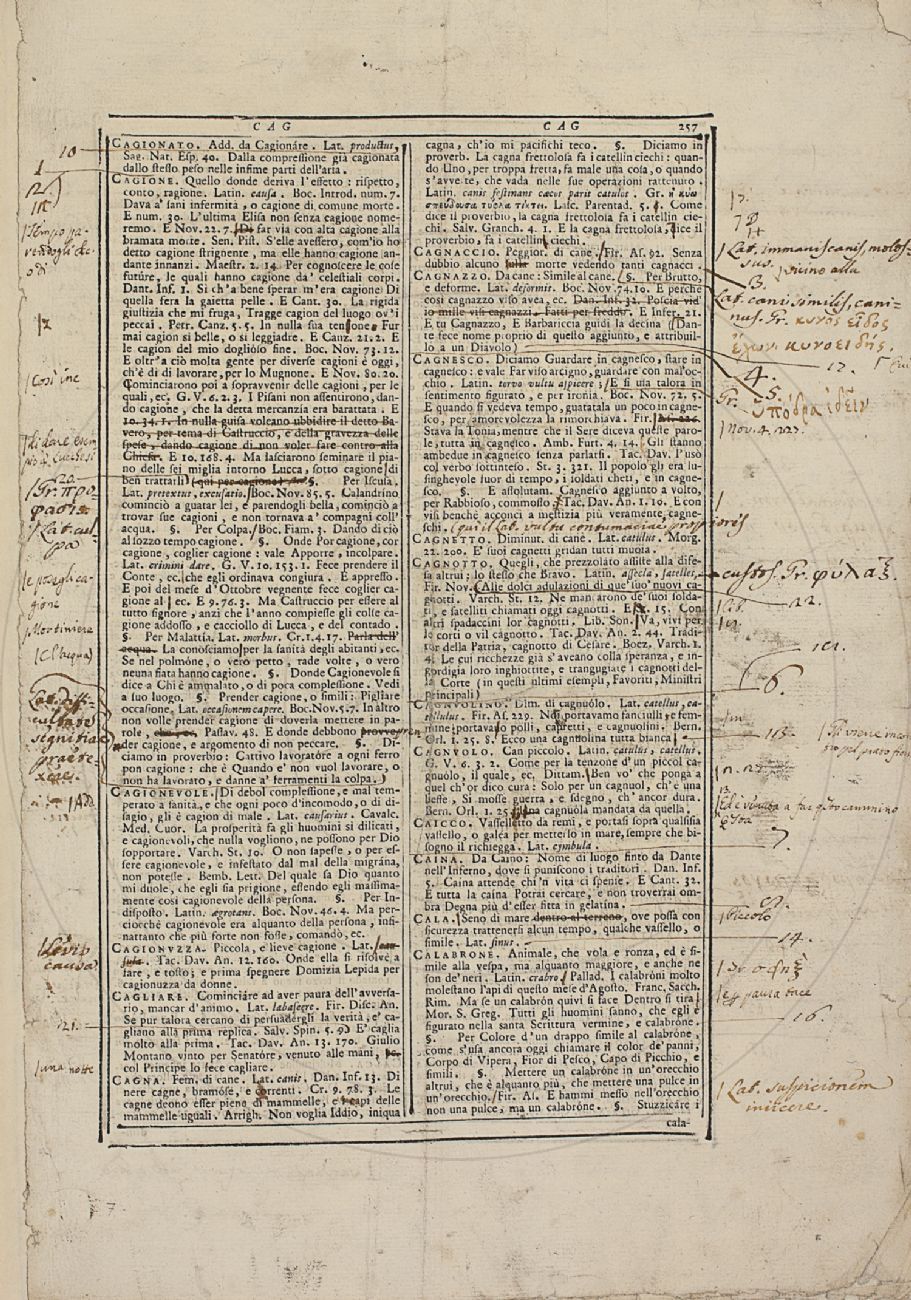 CAG
CAG
257
CAGIONATO. Add. da Cagionáre. Lat. productus,
Sag. Nat. Esp. 40. Dalla compressione già cagionata
dallo stesso peso nelle infime parti dell'aria.
CAGIONE. Quello donde deriva l'effetto: rispetto,
conto, ragione. Latin. causa. Boc. Introd. num. 7.
Dava a' sani infermità, o cagione di comune morte.
E num. 30. L'ultima Elisa non senza cagione nome-
remo. E Nov. 22. 7. Di far via con alta cagione alla
bramata morte. Sen. Pist. S'elle avessero, com'io ho
detto cagione strignente, ma elle hanno cagione an-
dante innanzi. Maestr. 2. 14. Per cognoscere le cose
future, le quali hanno cagione da' celestiali corpi.
Dant. Inf. 1. Si ch'a bene sperar m'era cagione Di
quella fera la gaietta pelle. E Cant. 30. La rigida
giustizia che mi fruga, Tragge cagion del luogo ov'i
peccai. Petr. Canz. 5. 5. In nulla sua tensone Fur
mai cagion si belle, o si leggiadre. E Canz. 21. 2. E
le cagion del mio doglioso fine. Boc. Nov. 73. 12.
E oltr'a ciò molta gente per diverse cagioni è oggi,
ch'è di di lavorare, per lo Mugnone. E Nov. 80. 20.
Cominciarono poi a sopravvenir delle cagioni, per le
quali, ec. G. V. 6. 2. 3. I Pisani non assentirono, dan-
do cagione, che la detta mercanzia era barattata. E
10. 34. 1. In nulla guisa voleano ubbidire il detto Ba-
vero, per tema di Castruccio, e della gravezza delle
spese, dando cagione di non voler fare contro alla
Chiesa. E 10. 168. 4. Ma lasciarono seminare il pia-
no delle sei miglia intorno Lucca, sotto cagione di
ben trattarli (qui per cagione) §. Per Iscusa.
Lat. pretextus, excusatio. Boc. Nov. 85. 5. Calandrino
cominciò a guatar lei, e parendogli bella, cominciò a
trovar sue cagioni, e non tornava a' compagni coll'
acqua. §. Per Colpa. Boc. Fiam. 3. Dando di ciò
al sozzo tempo cagione. §. Onde Por cagione, cor
cagione, coglier cagione: vale Apporre, incolpare.
Lat. crimini dare. G. V. 10. 153. 1. Fece prendere il
Conte, ec. che egli ordinava congiura. E appresso.
E poi del mese d'Ottobre vegnente fece coglier ca-
gione al, ec. E 9. 76. 3. Ma Castruccio per essere al
tutto signore, anzi che l'anno compiesse gli colse ca-
gione addosso, e cacciollo di Lucca, e del contado.
§. Per Malattia. Lat. morbus. Cr. 1. 4. 17. Parla dell'
acqua. La conosciamo per la sanità degli abitanti, ec.
Se nel polmone, o vero petto, rade volte, o vero
neuna fiata hanno cagione. §. Donde Cagionevole si
dice a Chi è ammalato, o di poca complessione. Vedi
a suo luogo. §. Prender cagione, o simili: Pigliare
occasione. Lat. occasionem capere. Boc. Nov. 5. 7. In altro
non volle prender cagione di doverla mettere in pa-
role, Passav. 48. E donde debbono provvegren
der cagione, e argomento di non peccare. §. Di-
ciamo in proverbio: Cattivo lavoratóre a ogni ferro
pon cagione: che è Quando e' non vuol lavorare, o
non ha lavorato, e danne a' ferramenti la colpa.
CAGIONEVOLE. Di debol complessione, e mal tem-
perato a sanità, e che ogni poco d'incomodo, o di di-
sagio, gli è cagion di male. Lat. causarius. Cavalc.
Med. Cuor. La prosperità fa gli huomini si dilicati,
e cagionevoli, che nulla vogliono, ne possono per Dio
sopportare. Varch. St. 10. O non sapesse, o per es-
sere cagionevole, e infestato dal mal della migrána,
non potesse. Bemb. Lett. Del quale sa Dio quanto
mi duole, che egli sia prigione, essendo egli massima-
mente così cagionevole della persona. §. Per In-
disposto. Latin. ægrotans. Boc. Nov. 46. 4. Ma per-
ciocchè cagionevole era alquanto della persona, insi-
nattanto che più forte non fosse, comandò, ec.
CAGIONUZZA. Piccola, e lieve cagione. Lat. cau-
sula. Tac. Dav. An. 12. 160. Onde ella si risolvè a
fare, e tosto; e prima spegnere Domizia Lepida per
cagionuzza da donne.
CAGLIARE. Cominciáre ad aver paura dell'avversa-
rio, mancar d'animo. Lat. labascere. Fir. Disc. An.
Se pur talora cercano di persuadergli la verità, e' ca-
gliano alla prima replica. Salv. Spin. 5. 9. E' caglia
molto alla prima. Tac. Dav. An. 13. 170. Giulio
Montano vinto per Senatóre, venuto alle mani,
col Principe lo fece cagliare.
CAGNA. Fem. di cane. Lat. canis. Dan. Inf. 13. Di
nere cagne, bramose, e correnti. Cr. 9. 78. 3. Le
cagne deono esser piene di mammelle, e capi delle
mammelle uguali. Arrigh. Non voglia Iddio, iniqua
cagna, ch'io mi pacifichi teco. §. Diciamo in
proverb. La cagna frettolosa fa i catellin ciechi: quan-
do Uno, per troppa fretta, fa male una cosa, o quando
s'avvete, che vada nelle sue operazioni rattenuto.
Latin. canis festinans cæcos parit catulos. Gr. ἡ κύων
σπεύδουσα τυφλὰ τίκτει. Lasc. Parentad. 5. 1. Come
dice il proverbio, la cagna frettolosa, fa i catellin cie-
chi. Salv. Granch. 4. 1. E la cagna frettolosa, dice il
proverbio, fa i catellini ciechi.
CAGNACCIO. Peggior. di cane. Fir. As. 92. Senza
dubbio alcuno morte vedendo tanti cagnacci.
CAGNAZZO. Da cane: Simile al cane. §. Per Brutto,
e deforme. Lat. deformis. Boc. Nov. 74. 10. E perchè
così cagnazzo viso avea, ec. Dan. Inf. 32. Poscia vid'
io mille visi cagnazzi. Fatti per freddo. E Infer. 21.
E tu Cagnazzo, E Barbariccia guidi la decina (Dan-
te fece nome proprio di quello aggiunto, e attribuil-
lo a un Diavolo)
CAGNESCO. Diciamo Guardare in cagnesco, stare in
cagnesco: e vale Far viso arcigno, guardare con mal'oc-
chio. Latin. torvo vultu aspicere; E si usa talora in
sentimento figurato, e per ironìa. Boc. Nov. 72. 5.
E quando si vedeva tempo, guatatala un poco in cagne-
sco, per amorevolezza la rimorchiava. Fir.
Stava la Tonia, mentre che il Sere diceva quelle paro-
le, tutta in cagnesco. Amb. Furt. 4. 14. Gli stanno
ambedue in cagnesco senza parlarsi. Tac. Dav. l'usò
col verbo sottinteso. St. 3. 321. Il popolo gli era lu-
singhevole fuor di tempo, i soldati cheti, e in cagne-
sco. §. E assolutam. Cagnesco aggiunto a volto,
per Rabbioso, commosso. Tac. Dav. An. 1. 10. E con
visi benchè acconci a mestizia più veramente cagne-
schi.
CAGNETTO. Diminut. di cane. Lat. catulus. Morg.
22. 200. E suoi cagnetti gridan tutti muoia.
CAGNOTTO. Quegli, che prezzolato assiste alla dife-
sa altrui; lo stesso che Bravo. Latin. assecla, satelles,
Fir. Nov. Alle dolci adulazioni di que'suo' nuovi ca-
gnotti. Varch. St. 12. Ne mancarono de' suoi solda-
ti, e satelliti chiamati oggi cagnotti. E 15. Con
altri spadaccini lor cagnotti. Lib. Son. Va, vivi per
le corti o vil cagnotto. Tac. Dav. An. 2. 44. Tradi-
tor della Patria, cagnotto di Cesare. Boez. Varch. 1.
4. Le cui ricchezze già s'aveano colla speranza, e in-
gordigia loro inghiottite, e trangugiate i cagnotti del-
la Corte (in questi ultimi esempli, Favoriti, Ministri
principali)
CAGNUOLINO. Dim. di cagnuólo. Lat. catellus, ca-
tellulus. Fir. As. 229. Noi portavamo fanciulli, e fem-
mine, portavamo polli, capretti, e cagnuolini. Bern.
Orl. 1. 25. 8. Ecco una cagnuolina tutta bianca.
CAGNUOLO. Can piccolo. Latin. catulus, catellus.
G. V. 6. 3. 2. Come per la tenzone d'un piccol ca-
gnuolo, il quale, ec. Dittam. Ben vo' che ponga a
quel ch'or dico cura: Solo per un cagnuol, ch'e una
beffe, Si mosse guerra, e sdegno, ch'ancor dura.
Bern. Orl. 1. 25. cagnuola mandata da quella.
CAICCO. Vasselletto da remi, e portasi sopra qualsisia
vassello, o galéa per metterlo in mare, sempre che bi-
sogno il richiegga. Lat. cymbula.
CAINA. Da Caino: Nome di luogo finto da Dante
nell'Inferno, dove si puniscono i traditori. Dan. Inf.
5. Caina attende chi 'n vita ci spense. E Cant. 32.
E tutta la caina Potrai cercare, e non troverrai om-
bra Degna più d'esser fitta in gelatina.
CALA. Seno di mare dentro al terreno, ove possa con
sicurezza trattenersi alcun tempo, qualche vassello, o
simile. Lat. sinus.
CALABRONE. Animale, che vola e ronza, ed è si-
mile alla vespa, ma alquanto maggiore, e anche ne
son de'neri. Latin. crabro. Pallad. I calabróni molto
molestano l'api di questo mese d'Agosto. Franc. Sacch.
Rim. Ma se un calabrón quivi si face Dentro si tira
Mor. S. Greg. Tutti gli huomini sanno, che egli è
figurato nella santa Scrittura vermine, e calabróne.
§. Per Colore d'un drappo simile al calabróne,
come s'usa ancora oggi chiamare il color de' panni,
Corpo di Vipera, Fior di Pesco, Capo di Picchio, e
simili. §. Mettere un calabróne in un'orecchio
altrui, che è alquanto più, che mettere una pulce in
un'orecchio. Fir. As. E hammi messo nell'orecchio
non una pulce, ma un calabróne. §. Stuzzicáre i
cala-
10
1
12
20.
21.
Lat. immanis canis, molos-
sus. vicino alla
3.
Lat. cani similis, cani-
nus. Gr. κυνὸς εἶδος
ἔχων. κυνοειδής.
12.
4.
5.
Gr. ὑπόδρα ἰδεῖν
Nov. 4. 223.
custos. Gr. φύλαξ.
22.
6.
7.
Piccolo
14.
Gr. σφήξ
16.
Lat. suspicionem
iniicere.
Gr. πρό
φασις
Lat. cul-
pa
Levis
causa
una notte